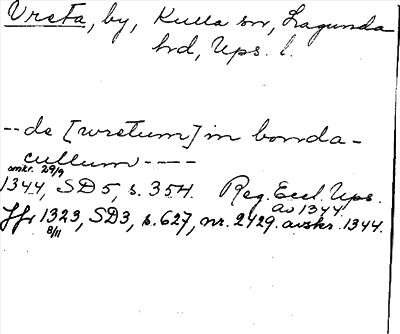 Vreta, by, Kulla sn, Lagunda
hd, Ups. l.
-- de [wretum] in bonda-
cullum ----
omkr. 29/9
1344, SD5, s. 354. Reg. Eccl. Ups.
av 1344.
Jfr 1323, SD3, s. 627, nr. 2429. avskr. 1344.
8/11